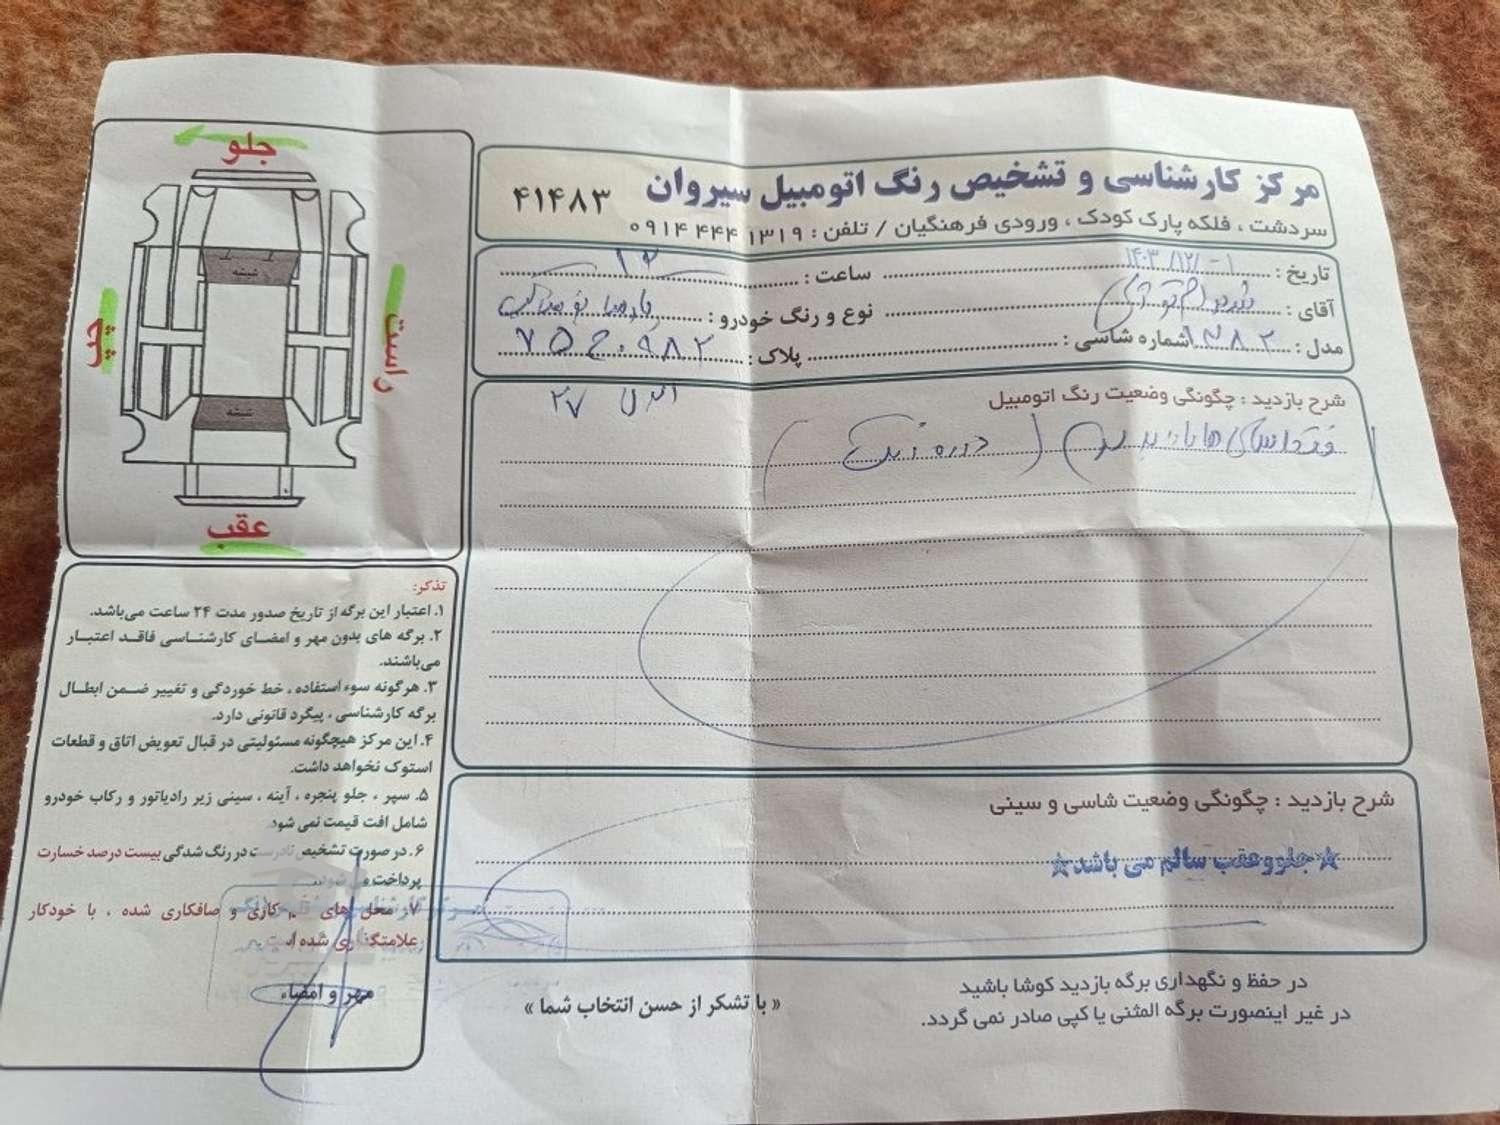 مرکز کارشناسی و تشخیص رنگ اتومبیل سیروان
۴۱۴۸۳
سردشت ، فلکه پارک کودک ، ورودی فرهنگیان / تلفن : ۱۳۱۹ ۴۴۴ ۰۹۱۴
تاریخ : ۱۴۰۳/۱۲/۰۱ ساعت : ۱۲
آقای : نوع و رنگ خودرو :
مدل : ۱۳۸۲ شماره شاسی : پلاک :
شرح بازدید : چگونگی وضعیت رنگ اتومبیل
ایران ۲۷
(دوره رنگ)
شرح بازدید : چگونگی وضعیت شاسی و سینی
☆جلو وعقب سالم می باشد☆
در حفظ و نگهداری برگه بازدید کوشا باشید
در غیر اینصورت برگه المثنی یا کپی صادر نمی گردد.
« با تشکر از حسن انتخاب شما »
جلو
شیشه
چپ
راست
شیشه
عقب
تذکر:
۱. اعتبار این برگه از تاریخ صدور مدت ۲۴ ساعت می‌باشد.
۲. برگه های بدون مهر و امضای کارشناسی فاقد اعتبار
می‌باشند.
۳. هرگونه سوء استفاده ، خط خوردگی و تغییر ضمن ابطال
برگه کارشناسی ، پیگرد قانونی دارد.
۴. این مرکز هیچگونه مسئولیتی در قبال تعویض اتاق و قطعات
استوک نخواهد داشت.
۵. سپر ، جلو پنجره ، آینه ، سینی زیر رادیاتور و رکاب خودرو
شامل افت قیمت نمی شود.
۶. در صورت تشخیص نادرست در رنگ شدگی بیست درصد خسارت
پرداخت می شود.
۷. محل های کاری و صافکاری شده ، با خودکار
علامتگذاری شده است.
مهر و امضاء